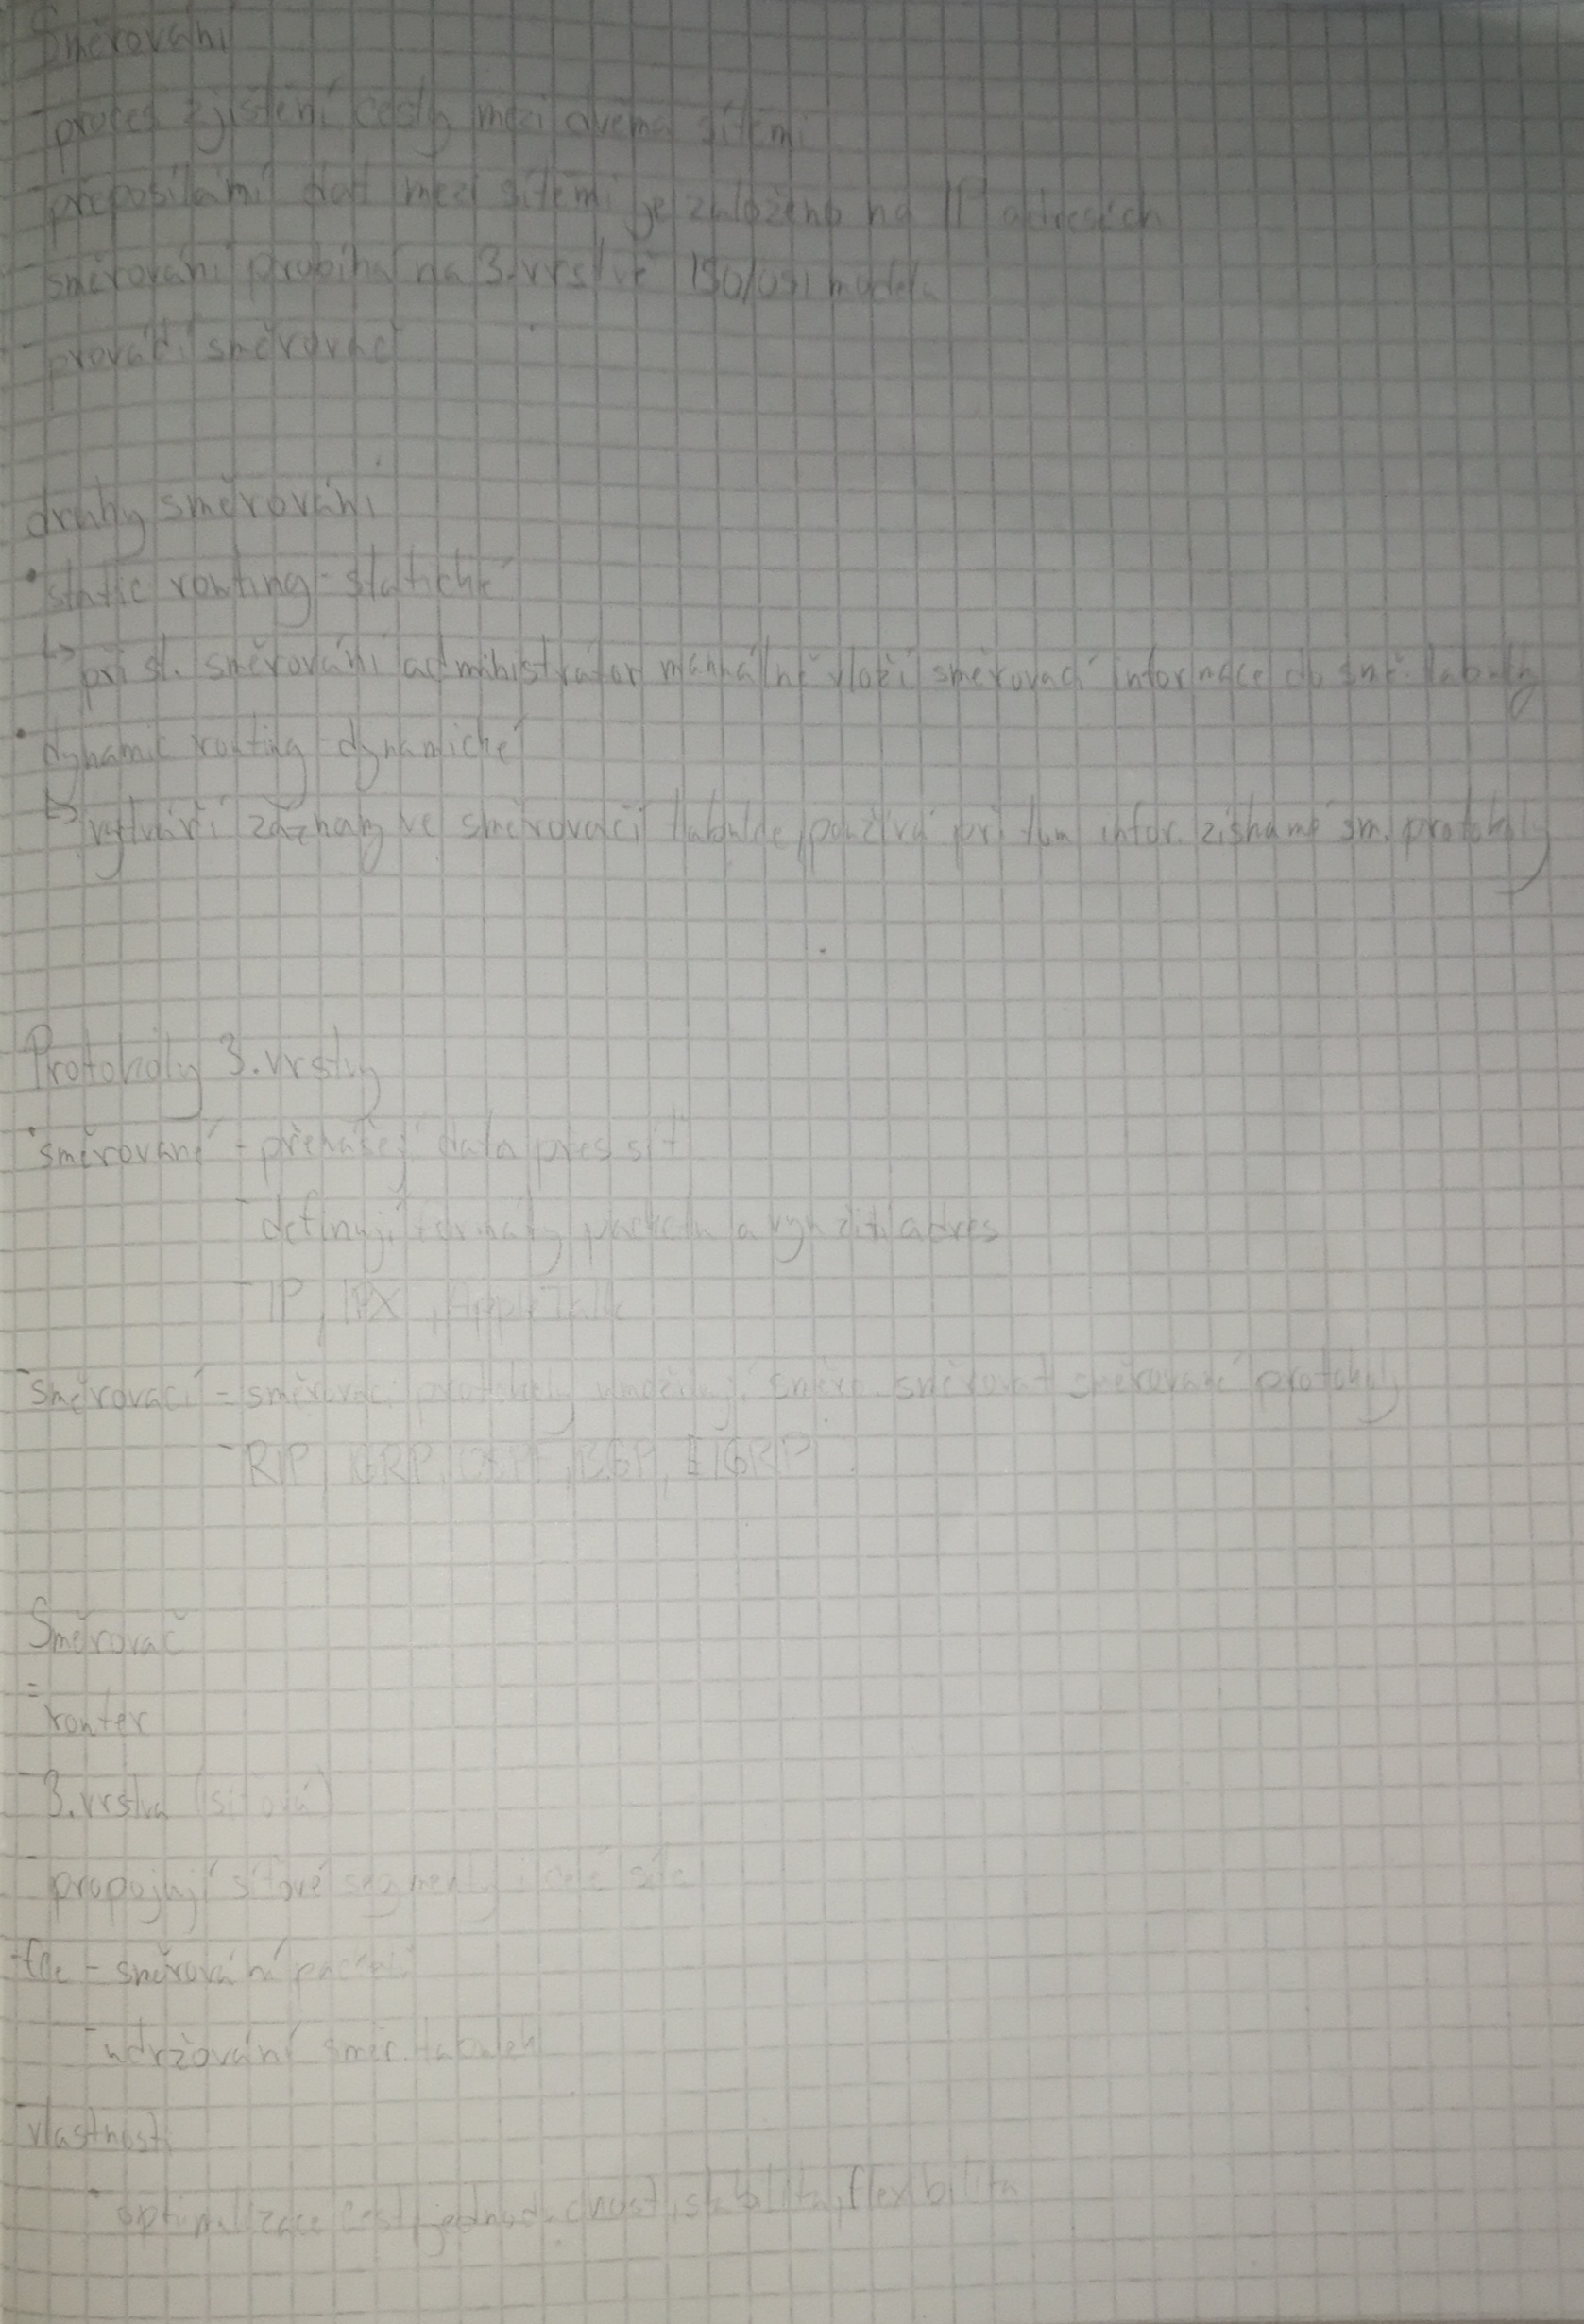 Směrování
- proces zjištění cesty mezi dvěma sítěmi
- přeposílání dat mezi sítěmi je založeno na IP adresách
- směrování probíhá na 3. vrstvě ISO/OSI modelu
- provádí směrovač
druhy směrování
• static routing - statické
↳ při st. směrování administrátor manuálně vloží směrovací informace do smě. tabulky
• dynamic routing - dynamické
↳ vytváří záznamy ve směrovací tabulce, používá při tom infor. získané sm. protokoly
Protokoly 3. vrstvy
• směrované - přenášejí data přes síť
- definují formáty paketu a využití adres
- IP, IPX, AppleTalk
- směrovací - směrovací protokoly umožňují směro. směrovat směrované protokoly
- RIP, IGRP, OSPF, BGP, EIGRP
Směrovač
= router
- 3. vrstva (síťová)
- propojují síťové segmenty i celé sítě
- fce - směrování paketů
- udržování směr. tabulek
vlastnosti
• optimalizace cest, jednoduchost, stabilita, flexibilita